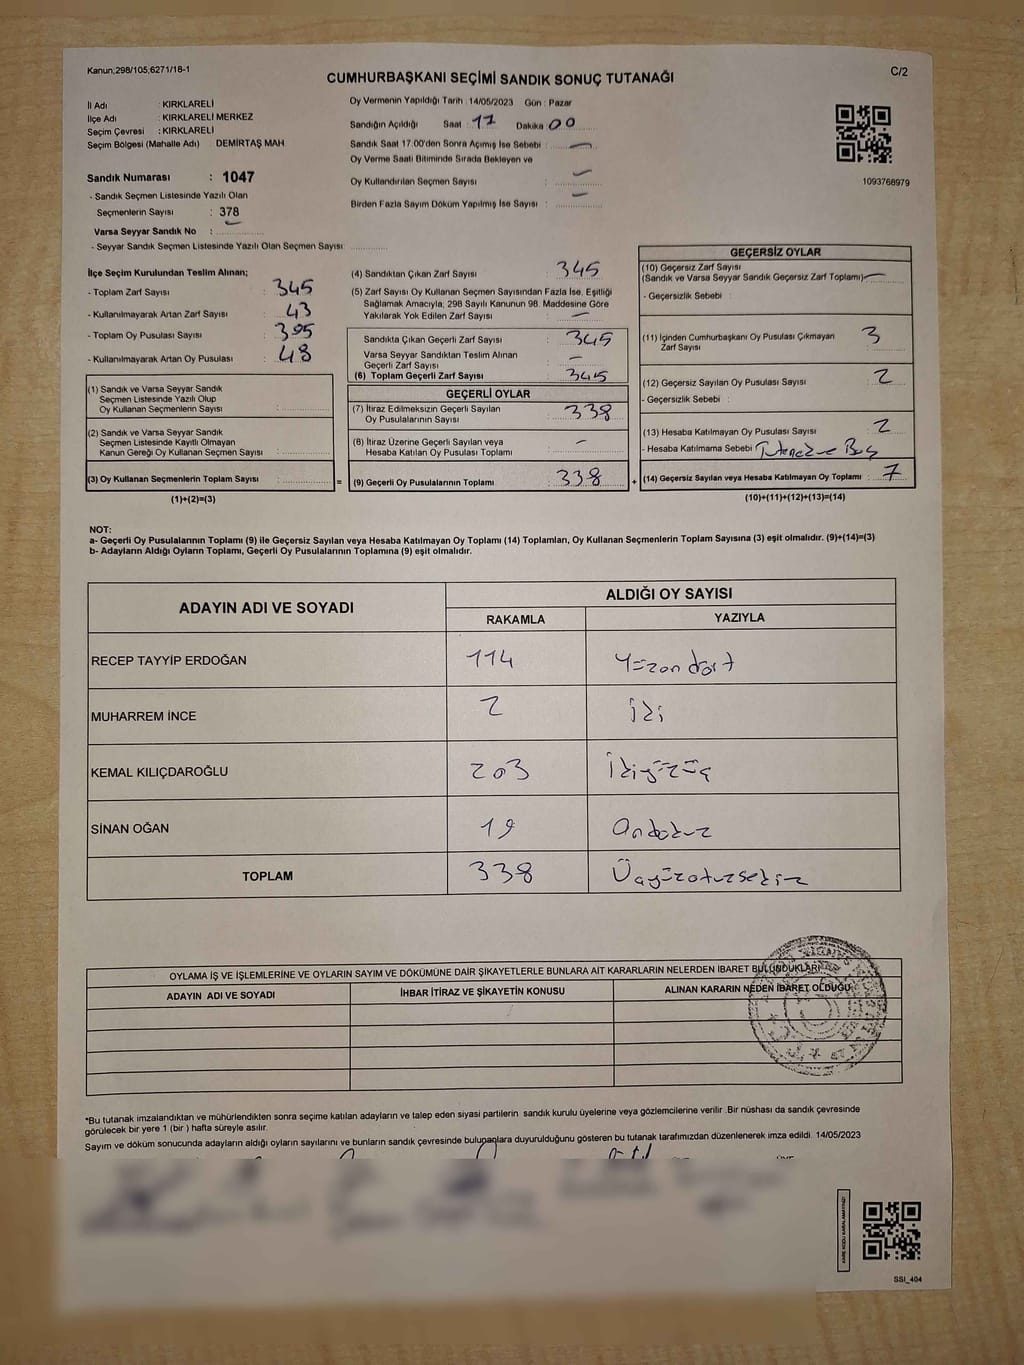 Kanun,298/105,6271/18-1
C/2
CUMHURBAŞKANI SEÇİMİ SANDIK SONUÇ TUTANAĞI
İl Adı : KIRKLARELİ
İlçe Adı : KIRKLARELİ MERKEZ
Seçim Çevresi : KIRKLARELİ
Seçim Bölgesi (Mahalle Adı) DEMİRTAŞ MAH
Sandık Numarası : 1047
- Sandık Seçmen Listesinde Yazılı Olan
Seçmenlerin Sayısı : 378
Varsa Seyyar Sandık No :
- Seyyar Sandık Seçmen Listesinde Yazılı Olan Seçmen Sayısı:
Oy Vermenin Yapıldığı Tarih : 14/05/2023 Gün : Pazar
Sandığın Açıldığı Saat : 17 Dakika : 00
Sandık Saat 17.00'den Sonra Açımış İse Sebebi : —
Oy Verme Saati Bitiminde Sırada Bekleyen ve
Oy Kullandırılan Seçmen Sayısı : —
Birden Fazla Sayım Döküm Yapılmış İse Sayısı : —
1093768979
İlçe Seçim Kurulundan Teslim Alınan;
- Toplam Zarf Sayısı : 345
- Kullanılmayarak Artan Zarf Sayısı : 43
- Toplam Oy Pusulası Sayısı : 395
- Kullanılmayarak Artan Oy Pusulası : 48
(1) Sandık ve Varsa Seyyar Sandık
Seçmen Listesinde Yazılı Olup
Oy Kullanan Seçmenlerin Sayısı :
(2) Sandık ve Varsa Seyyar Sandık
Seçmen Listesinde Kayıtlı Olmayan
Kanun Gereği Oy Kullanan Seçmen Sayısı :
(3) Oy Kullanan Seçmenlerin Toplam Sayısı :
(1)+(2)=(3)
(4) Sandıktan Çıkan Zarf Sayısı : 345
(5) Zarf Sayısı Oy Kullanan Seçmen Sayısından Fazla İse, Eşitliği
Sağlamak Amacıyla, 298 Sayılı Kanunun 98. Maddesine Göre
Yakılarak Yok Edilen Zarf Sayısı : —
Sandıkta Çıkan Geçerli Zarf Sayısı : 345
Varsa Seyyar Sandıktan Teslim Alınan
Geçerli Zarf Sayısı : —
(6) Toplam Geçerli Zarf Sayısı : 345
GEÇERLİ OYLAR
(7) İtiraz Edilmeksizin Geçerli Sayılan
Oy Pusulalarının Sayısı : 338
(8) İtiraz Üzerine Geçerli Sayılan veya
Hesaba Katılan Oy Pusulası Toplamı : —
= (9) Geçerli Oy Pusulalarının Toplamı : 338
GEÇERSİZ OYLAR
(10) Geçersiz Zarf Sayısı
(Sandık ve Varsa Seyyar Sandık Geçersiz Zarf Toplamı) —
- Geçersizlik Sebebi :
(11) İçinden Cumhurbaşkanı Oy Pusulası Çıkmayan
Zarf Sayısı : 3
(12) Geçersiz Sayılan Oy Pusulası Sayısı : 2
- Geçersizlik Sebebi :
(13) Hesaba Katılmayan Oy Pusulası Sayısı : 2
- Hesaba Katılmama Sebebi
+ (14) Geçersiz Sayılan veya Hesaba Katılmayan Oy Toplamı : 7
(10)+(11)+(12)+(13)=(14)
NOT:
a- Geçerli Oy Pusulalarının Toplamı (9) ile Geçersiz Sayılan veya Hesaba Katılmayan Oy Toplamı (14) Toplamları, Oy Kullanan Seçmenlerin Toplam Sayısına (3) eşit olmalıdır. (9)+(14)=(3)
b- Adayların Aldığı Oyların Toplamı, Geçerli Oy Pusulalarının Toplamına (9) eşit olmalıdır.
ADAYIN ADI VE SOYADI
ALDIĞI OY SAYISI
RAKAMLA YAZIYLA
RECEP TAYYİP ERDOĞAN 114 Yüzondört
MUHARREM İNCE 2 İki
KEMAL KILIÇDAROĞLU 203 İkiyüzüç
SİNAN OĞAN 19 Ondokuz
TOPLAM 338 Üçyüzotuzsekiz
OYLAMA İŞ VE İŞLEMLERİNE VE OYLARIN SAYIM VE DÖKÜMÜNE DAİR ŞİKAYETLERLE BUNLARA AİT KARARLARIN NELERDEN İBARET BULUNDUKLARI
ADAYIN ADI VE SOYADI İHBAR İTİRAZ VE ŞİKAYETİN KONUSU ALINAN KARARIN NEDEN İBARET OLDUĞU
*Bu tutanak imzalandıktan ve mühürlendikten sonra seçime katılan adayların ve talep eden siyasi partilerin sandık kurulu üyelerine veya gözlemcilerine verilir .Bir nüshası da sandık çevresinde
görülecek bir yere 1 (bir ) hafta süreyle asılır.
Sayım ve döküm sonucunda adayların aldığı oyların sayılarını ve bunların sandık çevresinde bulunanlara duyurulduğunu gösteren bu tutanak tarafımızdan düzenlenerek imza edildi. 14/05/2023
KARE KODU KARALAMAYINIZ!
SSI_404